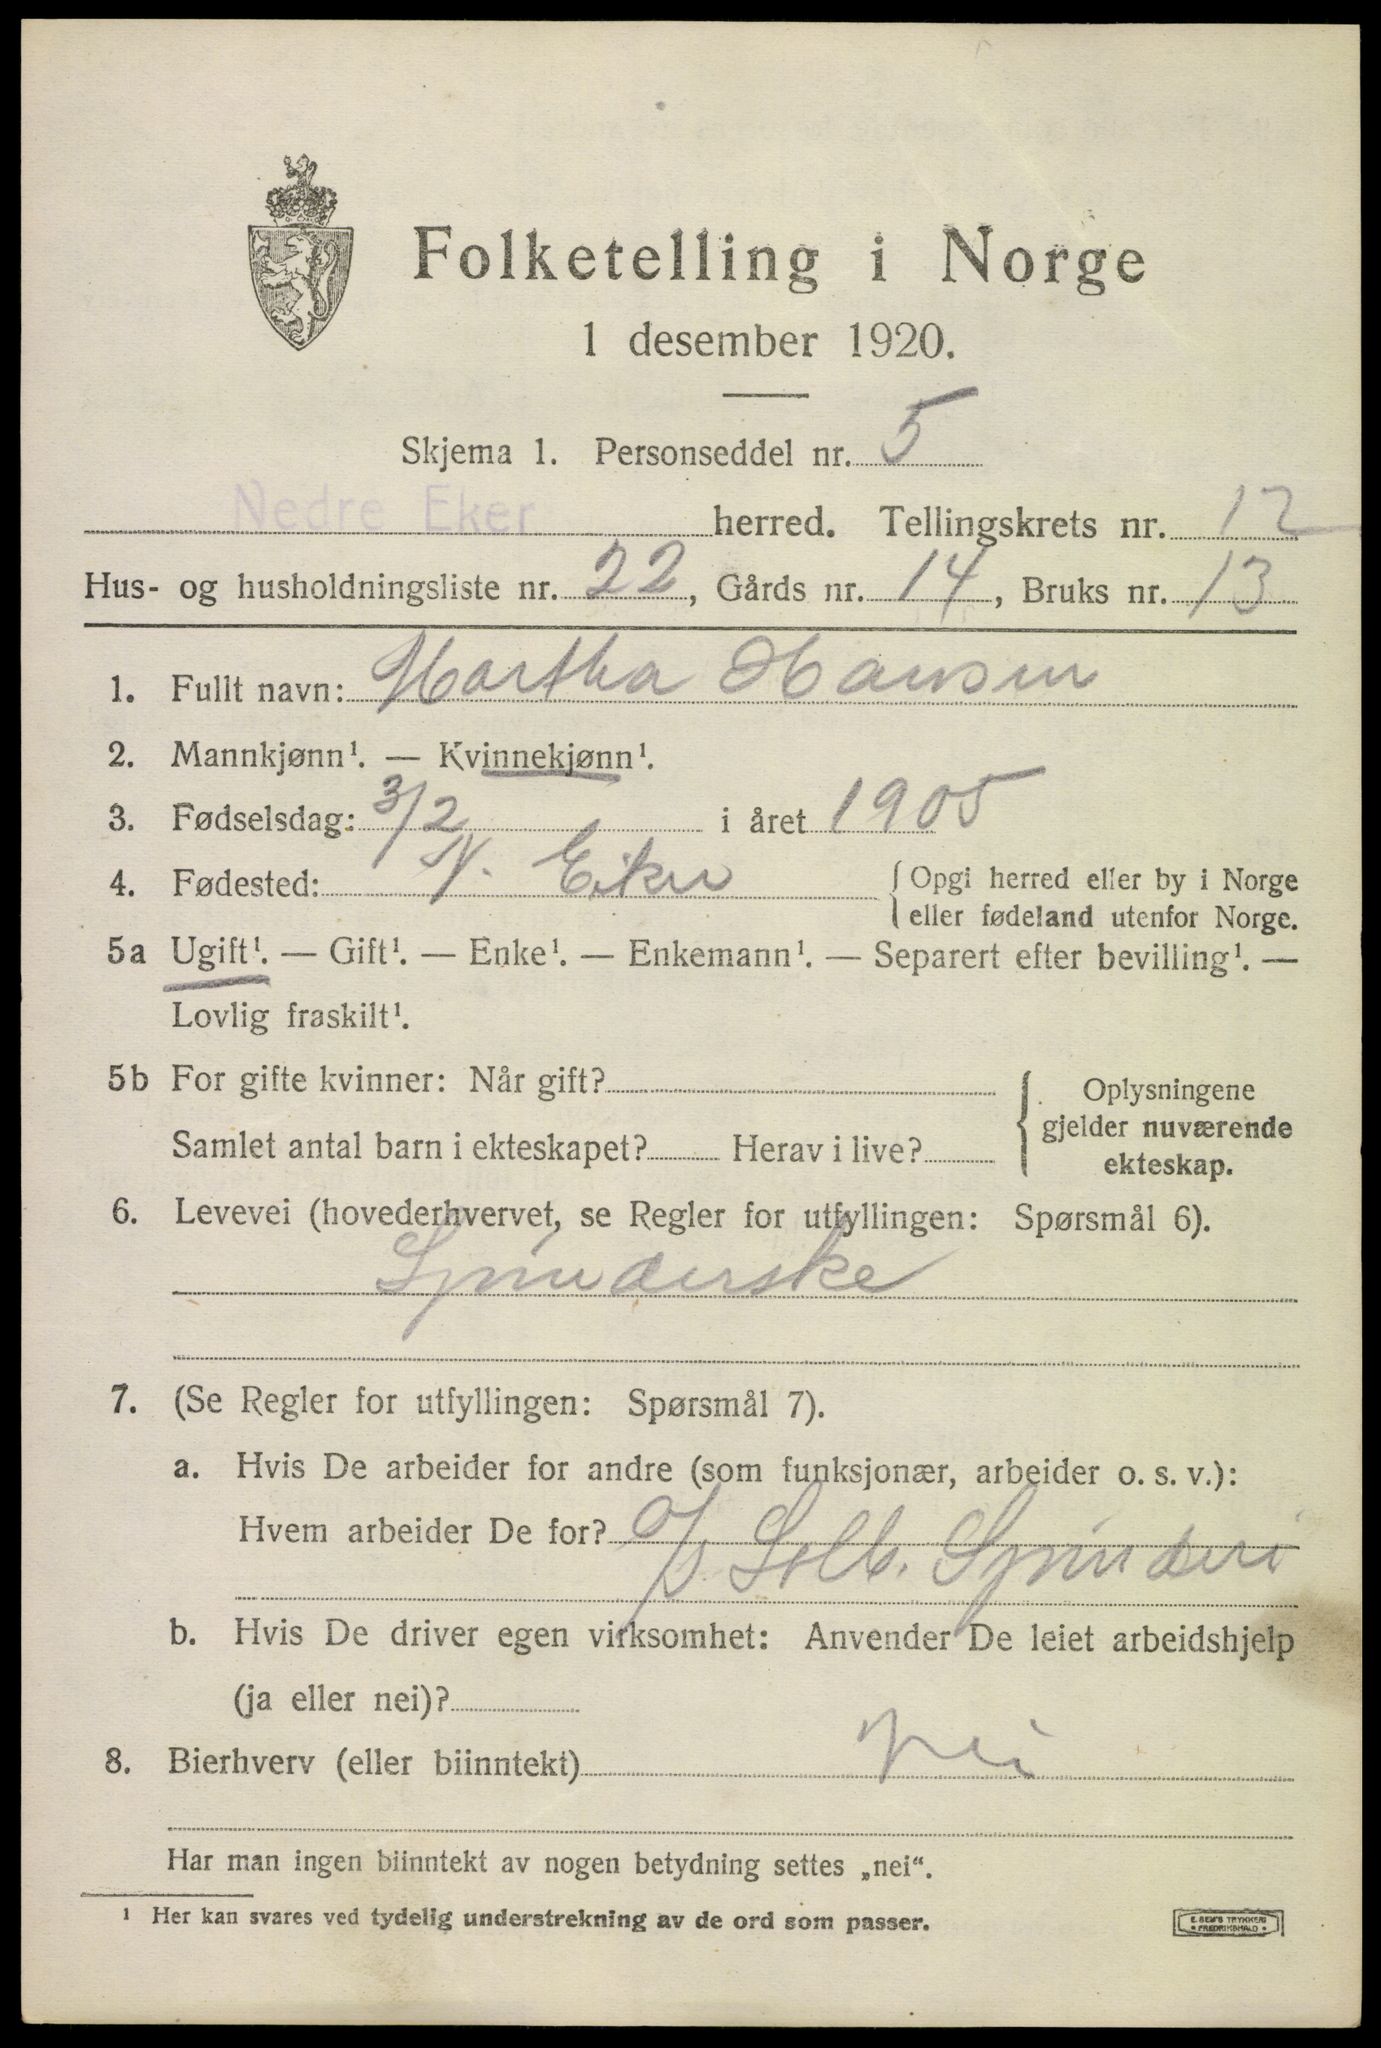 Folketelling i Norge
1 desember 1920.
Skjema 1. Personseddel nr. 5
Nedre Eker herred. Tellingskrets nr. 12
Hus- og husholdningsliste nr. 22, Gårds nr. 14, Bruks nr. 13
1. Fullt navn: Martha Hansen
2. Mannkjønn¹. — Kvinnekjønn¹.
3. Fødselsdag: 3/2 i året 1905
4. Fødested: N. Eiker { Opgi herred eller by i Norge
eller fødeland utenfor Norge.
5a Ugift¹. — Gift¹. — Enke¹. — Enkemann¹. — Separert efter bevilling¹. —
Lovlig fraskilt¹.
5b For gifte kvinner: Når gift? { Oplysningene
gjelder nuværende
Samlet antal barn i ekteskapet? Herav i live?
ekteskap.
6. Levevei (hovederhvervet, se Regler for utfyllingen: Spørsmål 6).
Spinderske
7. (Se Regler for utfyllingen: Spørsmål 7).
a. Hvis De arbeider for andre (som funksjonær, arbeider o. s. v.):
Hvem arbeider De for? A/S. Solb. Spinderi
b. Hvis De driver egen virksomhet: Anvender De leiet arbeidshjelp
(ja eller nei)?
8. Bierhverv (eller biinntekt) Nei
Har man ingen biinntekt av nogen betydning settes „nei“.
¹ Her kan svares ved tydelig understrekning av de ord som passer.
E. SEM'S TRYKKERI
• FREDRIKSHALD •